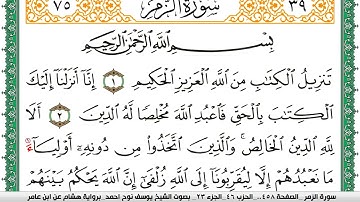 ٧٥ سُورَةُ الزُّمَرِ ٣٩
بِسْمِ اللَّهِ الرَّحْمَٰنِ الرَّحِيمِ
تَنزِيلُ الْكِتَٰبِ مِنَ اللَّهِ الْعَزِيزِ الْحَكِيمِ ١ إِنَّا أَنزَلْنَا إِلَيْكَ
الْكِتَٰبَ بِالْحَقِّ فَاعْبُدِ اللَّهَ مُخْلِصًا لَّهُ الدِّينَ ٢ أَلَا
لِلَّهِ الدِّينُ الْخَالِصُ وَالَّذِينَ اتَّخَذُوا مِن دُونِهِ أَوْلِيَاءَ
مَا نَعْبُدُهُمْ إِلَّا لِيُقَرِّبُونَا إِلَى اللَّهِ زُلْفَىٰ إِنَّ اللَّهَ يَحْكُمُ بَيْنَهُمْ
سورة الزمر_الصفحة ٤٥٨_الحزب ٤٦_الجزء ٢٣_ بصوت الشيخ يوسف نوح أحمد_برواية هشام عن ابن عامر